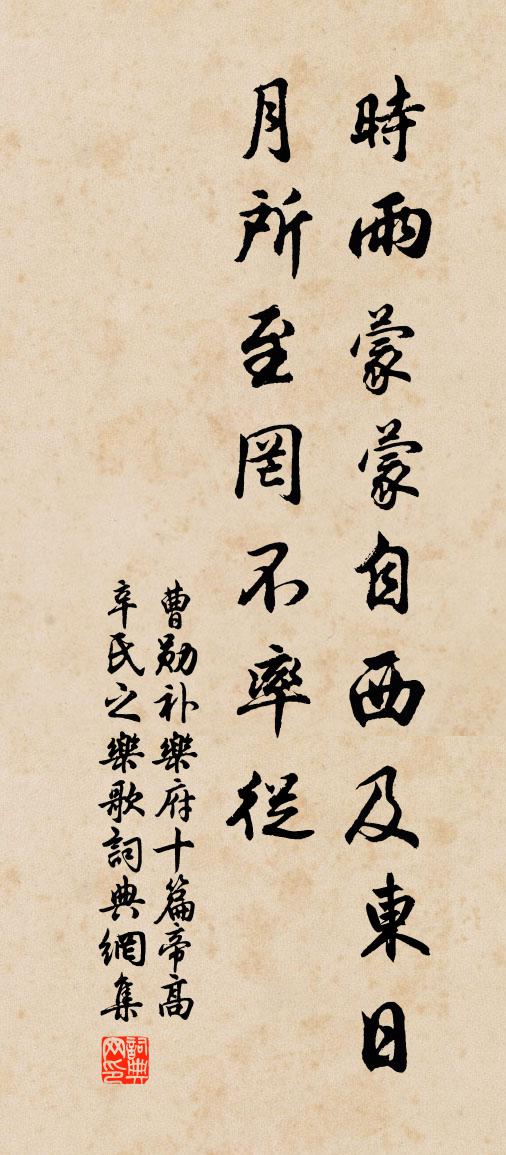 時雨蒙蒙自西及東日
月所至罔不率從
曹勛补樂府十篇帝高
辛氏之樂歌詞典網集
詞典网印